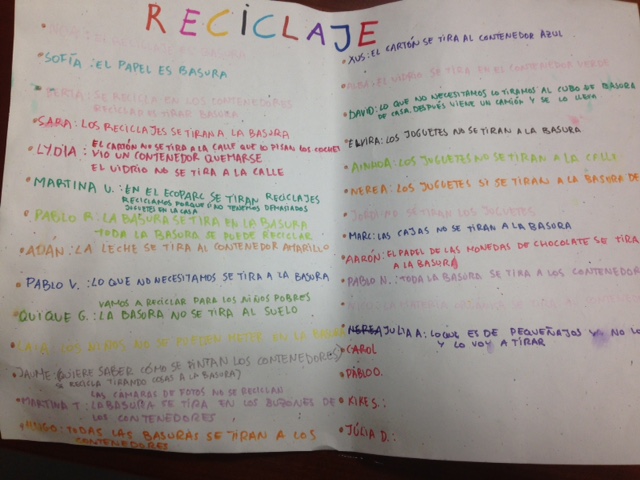 RECICLAJE
SOFÍA: EL PAPEL ES BASURA
BERTA: SE RECICLA EN LOS CONTENEDORES
RECICLAR ES TIRAR BASURA
SARA: LOS RECICLAJES SE TIRAN A LA BASURA
EL CARTÓN NO SE TIRA A LA CALLE QUE LO PISAN LOS COCHES
LYDIA: VIO UN CONTENEDOR QUEMARSE
EL VIDRIO NO SE TIRA A LA CALLE
MARTINA V.: EN EL ECOPARC SE TIRAN RECICLAJES
RECICLAMOS PORQUE NO TENEMOS DEMASIADOS
JUGUETES EN LA CASA
PABLO R: LA BASURA SE TIRA EN LA BASURA
TODA LA BASURA SE PUEDE RECICLAR
ADAN: LA LECHE SE TIRA AL CONTENEDOR AMARILLO
PABLO V.: LO QUE NO NECESITAMOS SE TIRA A LA BASURA
VAMOS A RECICLAR PARA LOS NIÑOS POBRES
QUIQUE G.: LA BASURA NO SE TIRA AL SUELO
LOS NIÑOS NO SE PUEDEN METER EN LA BASURA
JAUME: (QUIERE SABER CÓMO SE PINTAN LOS CONTENEDORES)
SE RECICLA TIRANDO COSAS A LA BASURA)
LAS CÁMARAS DE FOTOS NO SE RECICLAN
MARTINA T: LA BASURA SE TIRA EN LOS BUZONES DE
LOS CONTENEDORES
HUGO: TODAS LAS BASURAS SE TIRAN A LOS
CONTENEDORES
XUS: EL CARTÓN SE TIRA AL CONTENEDOR AZUL
EL VIDRIO SE TIRA EN EL CONTENEDOR VERDE
DAVID: LO QUE NO NECESITAMOS LO TIRAMOS AL CUBO DE BASURA
DE CASA. DESPUÉS VIENE UN CAMIÓN Y SE LO LLEVA
ELVIRA: LOS JUGUETES NO SE TIRAN A LA BASURA
AINHOA: LOS JUGUETES NO SE TIRAN A LA CALLE
NEREA: LOS JUGUETES SI SE TIRAN A LA BASURA DE
JORDI: NO SE TIRAN LOS JUGUETES
MARC: LAS CAJAS NO SE TIRAN A LA BASURA
AARÓN: EL PAPEL DE LAS MONEDAS DE CHOCOLATE SE TIRA
A LA BASURA
PABLO N.: TODA LA BASURA SE TIRA A LOS CONTENEDOR
JULIA A: LO QUE ES DE PEQUEÑAJOS YO NO LO
Y LO VOY A TIRAR
CAROL
PABLO O.
XIKE S.:
JÚLIA D.: